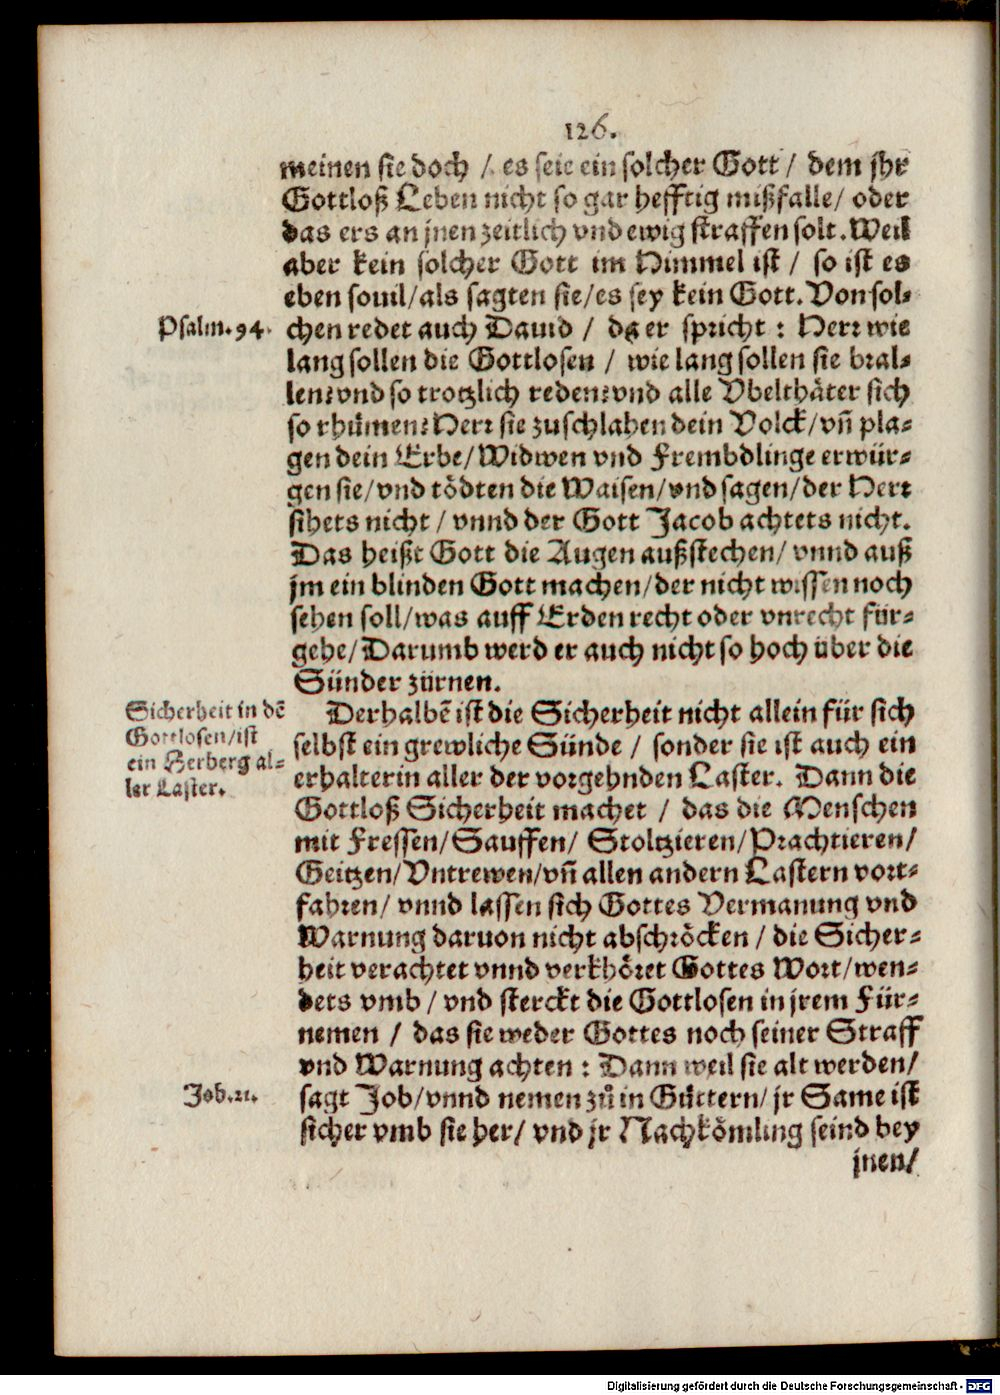 126.
meinen sie doch / es seie ein solcher Gott / dem jhr
Gottloß Leben nicht so gar hefftig mißfalle / oder
das ers an jnen zeitlich vnd ewig straffen solt. Weil
aber kein solcher Gott im Himmel ist / so ist es
eben souil/als sagten sie/es sey kein Gott. Von sol-
Psalm.94.
chen redet auch Dauid / da er spricht : Herr wie
lang sollen die Gottlosen / wie lang sollen sie bral-
len? vnd so trotzlich reden? vnd alle Vbelthäter sich
so rhümen? Herr sie zuschlahen dein Volck/vñ pla-
gen dein Erbe/Widwen vnd Frembdlinge erwür-
gen sie/vnd tödten die Waisen/vnd sagen/der Herr
sihets nicht / vnnd der Gott Jacob achtets nicht.
Das heißt Gott die Augen außstechen/ vnnd auß
jm ein blinden Gott machen/der nicht wissen noch
sehen soll/was auff Erden recht oder vnrecht für-
gehe/Darumb werd er auch nicht so hoch über die
Sünder zürnen.
Sicherheit in dẽ
Gottlosen/ist
ein Herberg al-
ler Laster.
Derhalbẽ ist die Sicherheit nicht allein für sich
selbst ein grewliche Sünde / sonder sie ist auch ein
erhalterin aller der vorgehnden Laster. Dann die
Gottloß Sicherheit machet / das die Menschen
mit Fressen/Sauffen/ Stoltzieren/Prachtieren/
Geitzen/Vntrewen/vñ allen andern Lastern vort-
fahren/ vnnd lassen sich Gottes Vermanung vnd
Warnung daruon nicht abschröcken / die Sicher-
heit verachtet vnnd verkhöret Gottes Wort/wen-
dets vmb / vnd sterckt die Gottlosen in jrem Für-
nemen / das sie weder Gottes noch seiner Straff
vnd Warnung achten : Dann weil sie alt werden/
Job.21.
sagt Job/vnnd nemen zů in Güttern/ jr Same ist
sicher vmb sie her/ vnd jr Nachkömling seind bey
jnen/
Digitalisierung gefördert durch die Deutsche Forschungsgemeinschaft - DFG